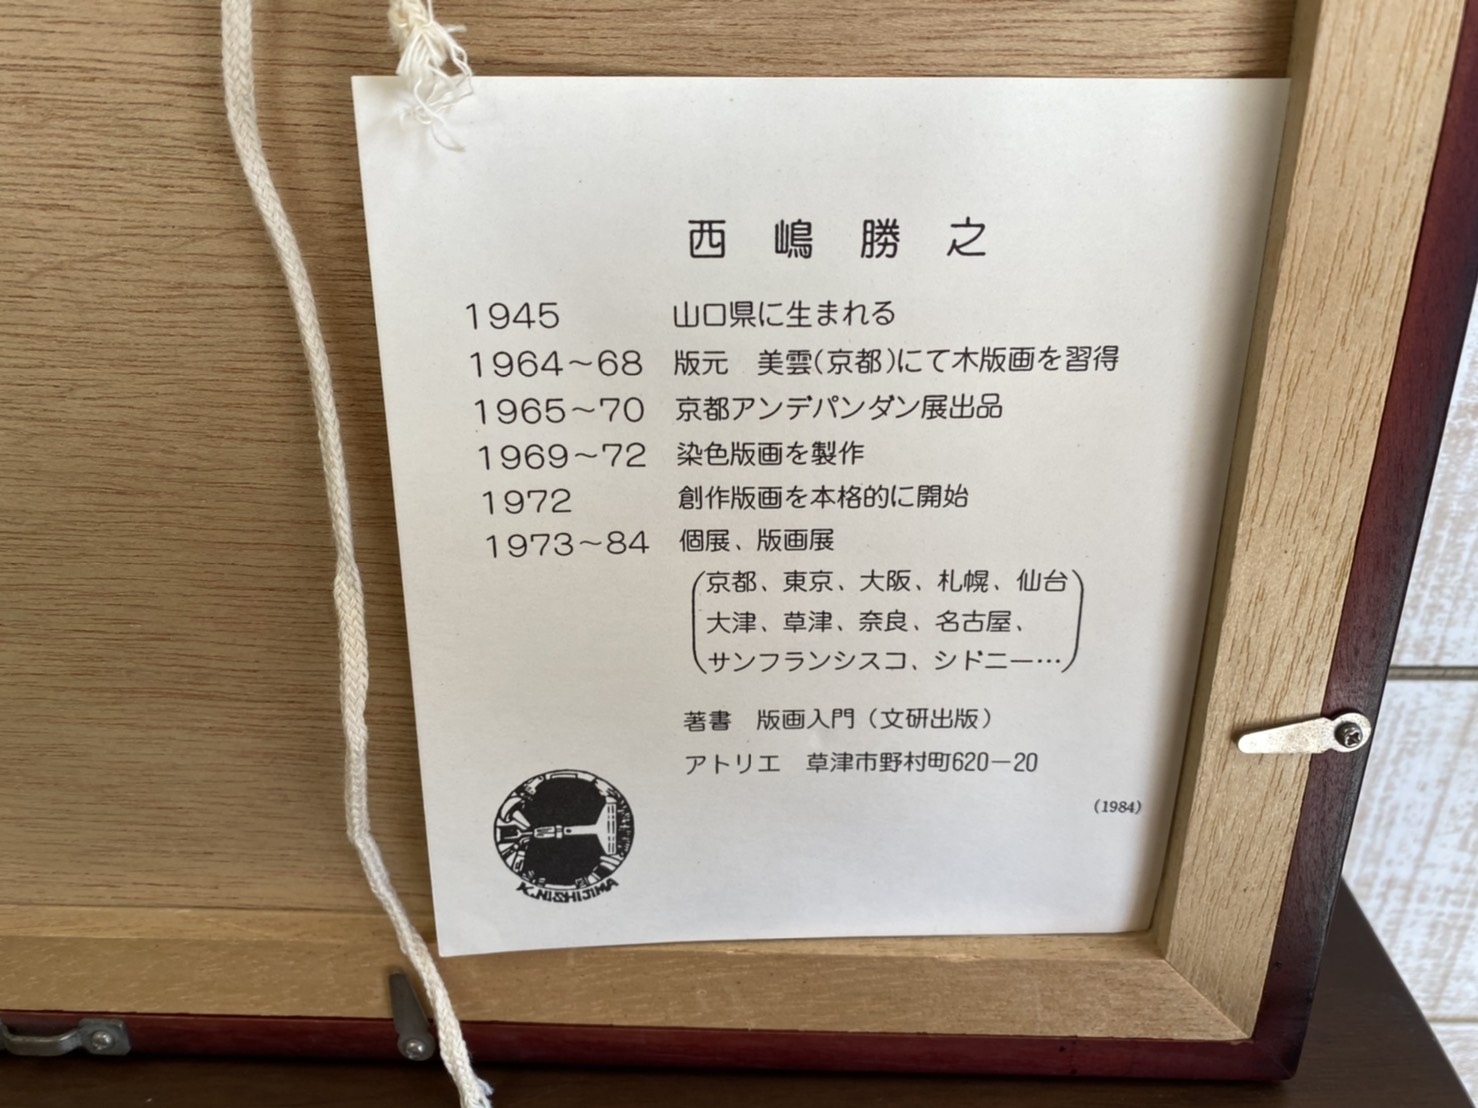 西嶋勝之
1945 山口県に生まれる
1964～68 版元 美雲(京都)にて木版画を習得
1965～70 京都アンデパンダン展出品
1969～72 染色版画を製作
1972 創作版画を本格的に開始
1973～84 個展、版画展
(京都、東京、大阪、札幌、仙台
大津、草津、奈良、名古屋、
サンフランシスコ、シドニー…)
著書 版画入門（文研出版）
アトリエ 草津市野村町620－20
(1984)
K.NISHIJIMA